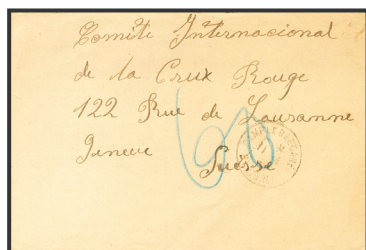 Comite Internacional
de la Crux Rouge
122 Rue de Lausanne
Geneve
Suisse